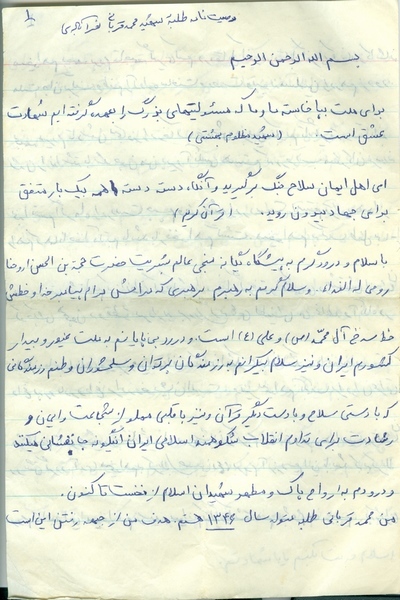 وصیت نامه طلبه شهید محمد قربانی
بسم الله الرحمن الرحیم
برای ملت بپا خاسته ما و ما که مسئولیتهای بزرگ را بعهده گرفته ایم شهادت
عشق است. (شهید مظلوم بهشتی)
ای اهل ایمان سلاح جنگ برگیرید و آنگاه دسته دسته یا همه یک بار متفق
برای جهاد بیرون روید. (قرآن کریم)
با سلام و درود گرم به پیشگاه یگانه منجی عالم بشریت حضرت حجه بن الحسن ارواحنا
و روحی له الفداء و سلام گرم به رهبرم رهبری که پیامش پیام خدا و خطش
خط سرخ آل محمد (ص) و علی (ع) است. و درود بی پایانم به ملت غیور و بیدار
کشورم ایران و نیز سلام بیکرانم به رزمندگان برادران و سلحشوران وطنم رزمندگانی
که با دستی سلاح و با دست دیگر قرآن و نیز با قلبی مملو از شجاعت و ایمان و
شهادت برای تداوم انقلاب شکوهمند اسلامی ایران اینگونه جانفشانی میکنند
و درودم به ارواح پاک و مطهر شهیدان اسلام از نخست تا کنون.
من محمد قربانی طلبه متولد سال ۱۳۴۶ هستم. هدف من از جبهه رفتن این است